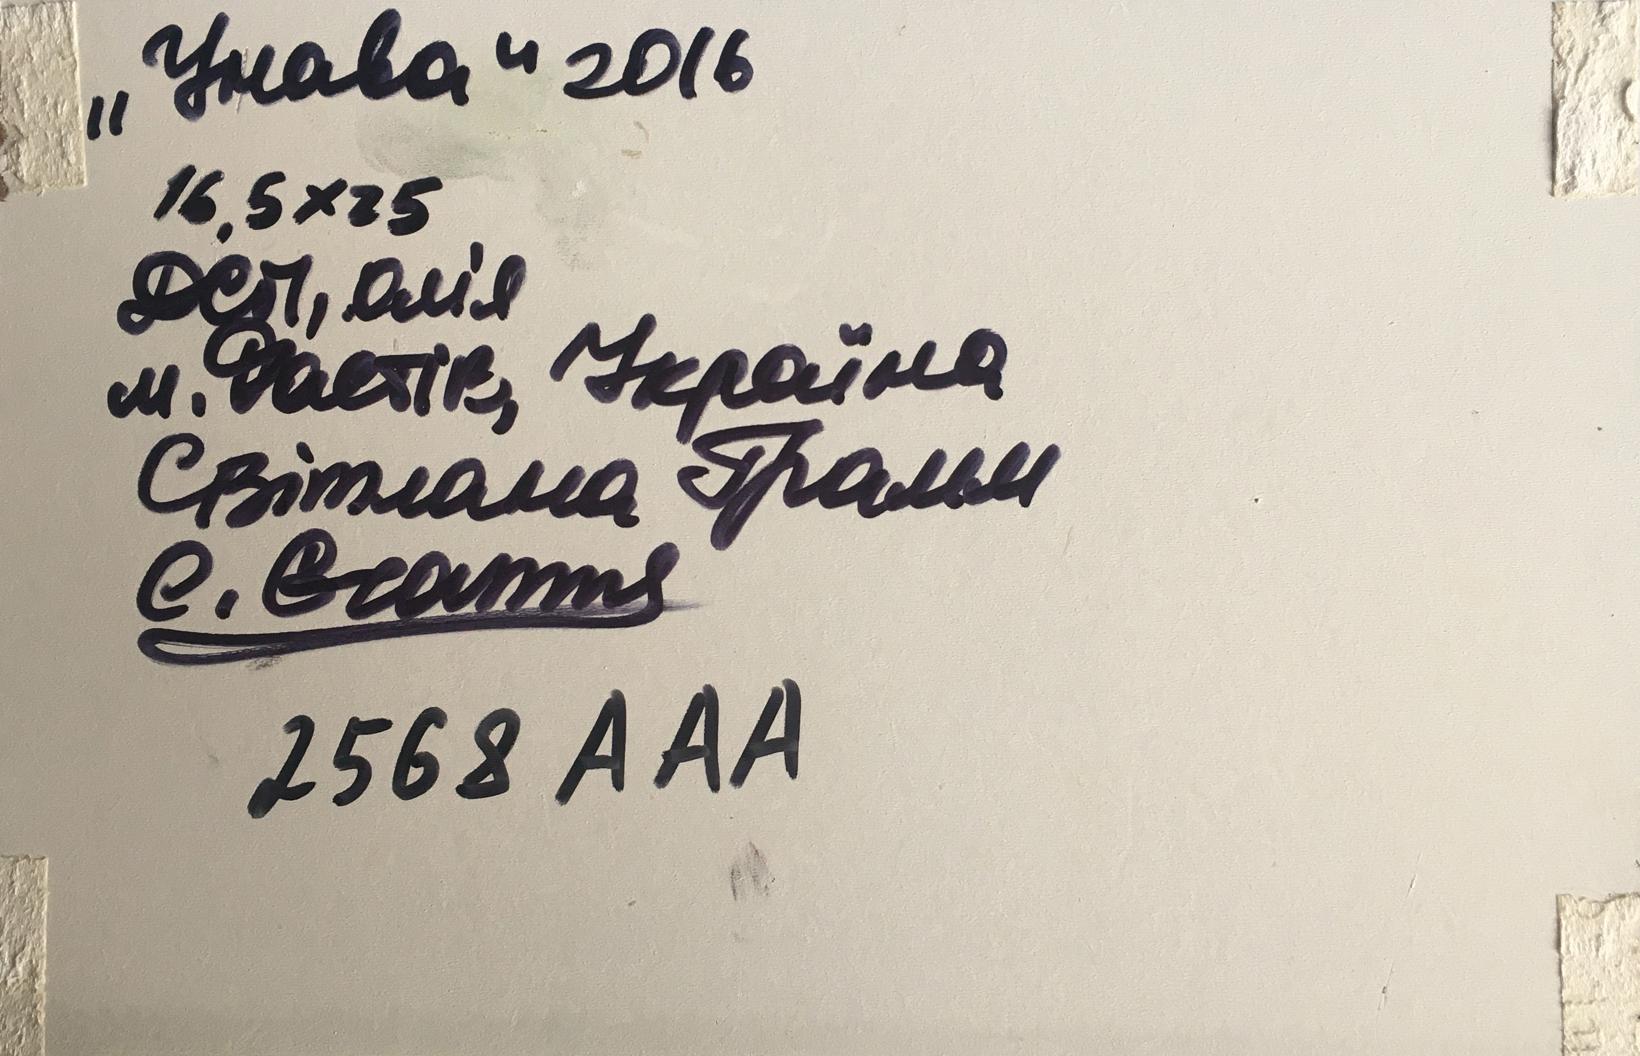 „Унава“ 2016
16,5x25
ДСП, олія
м. Фастів, Україна
Світлана Грамм
с.
2568 ААА